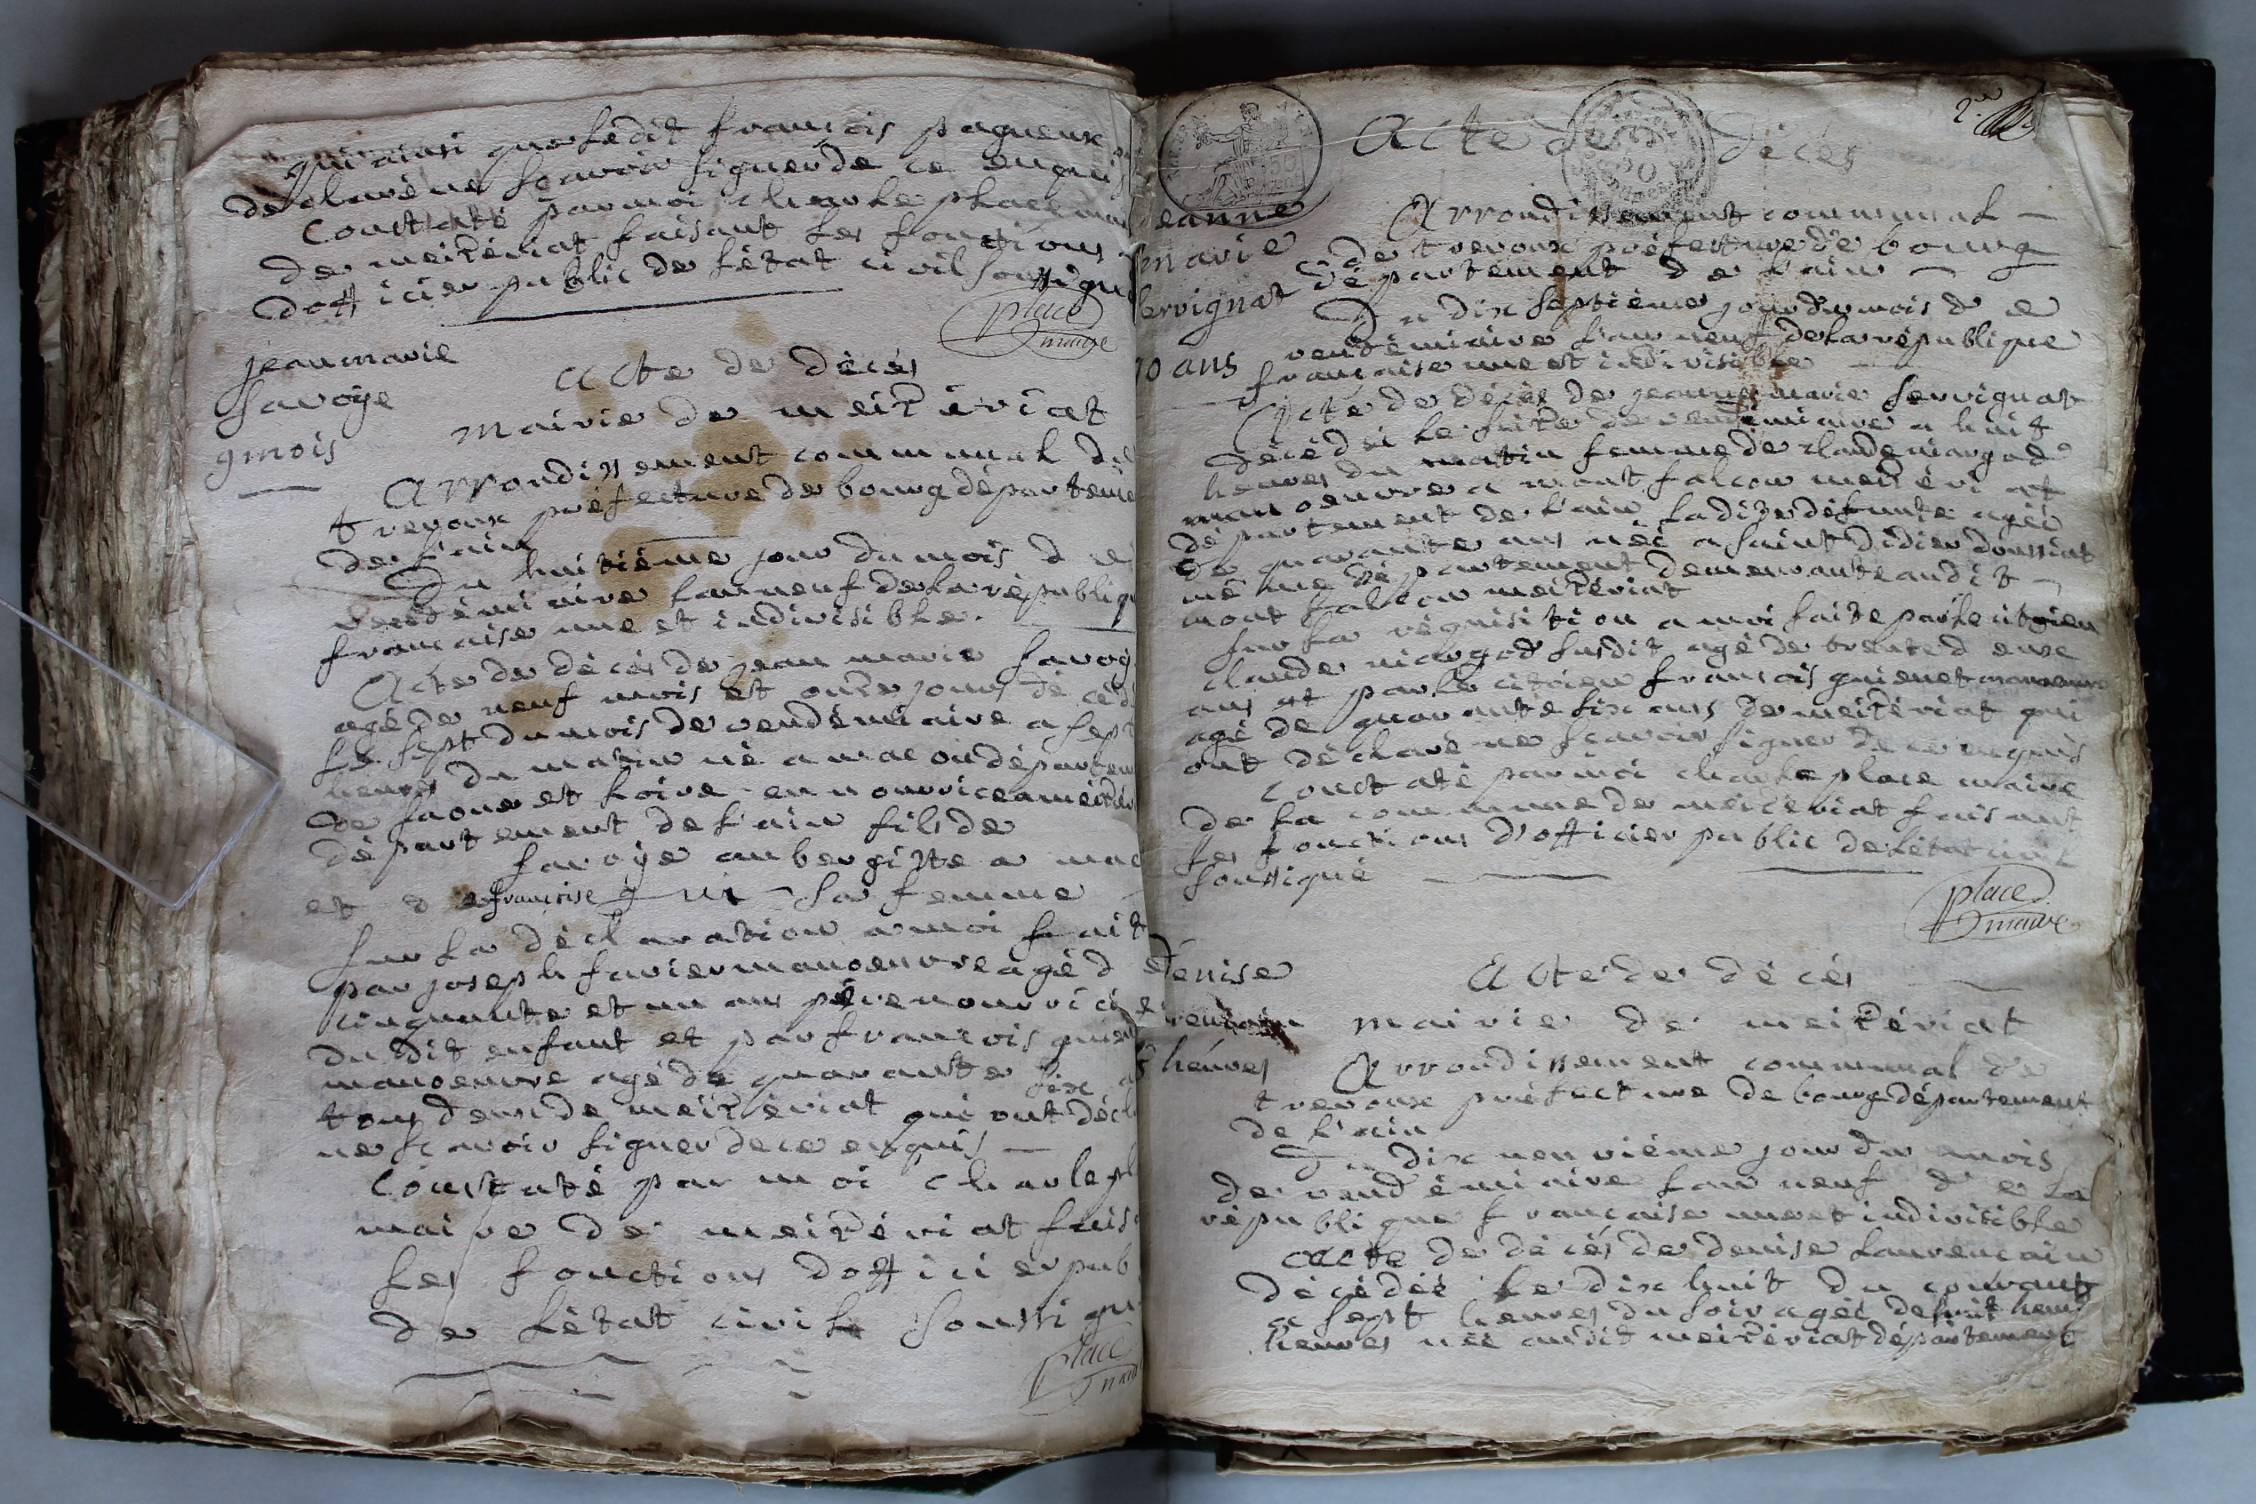 qui ainsi que ledit françois pagneux
declaré ne scavoir signer de ce enquis
Constaté par moi charle place mai
de meizériat faisant les fonctions
dofficier public de létat civil soussigné
place
maire
jean marie
savoye
9 mois
acte de décés
mairie de meizériat
Arrondissement communal de
trevoux préfecture de bourg départeme
de l'ain
Du huitiéme jour du mois de
vendémiaire l'an neuf de la républiq
francaise une et indivisible.
Acte de décés de jean marie savoy
agé de neuf mois et onze jours décéd
le sept du mois de vendémiaire a sept
heures du matin né a macon départem
de saone et loire en nourrice a meizér
département de l'ain fils de
savoye aubergiste a mac
et de francoise sa femme
sur la déclaration a moi fait
par joseph favier manoeuvre agé d
cinquante et un ans pére nourricie
dudit enfant et par francois guien
manoeuvre agé de quarante six a
tous deux de meizériat qui ont décl
ne scavoir signer de ce enquis
Constaté par moi charle pl
maire de meizériat fais
les fonctions dofficier pub
de létat civil soussigne
place
mair
2.me
Acte de décés
jeanne
marie
servignat
40 ans
Arrondissement communal
de trevoux préfecture de bourg
département de l'ain
Du dix septiéme jour du mois de
vendémiaire l'an neuf de la république
francaise une et indivisible
Acte de décés de jeanne marie servignat
décédéé le seize de vendémiaire a huit
heures du matin femme de claude niogod
manoeuvre a mont falcon meizériat
département de l'ain ladite défunte agéé
de quarante ans néé a saint didier doussiat
méme département demeurante audit
mont falcon meizériat
sur la réquisition a moi faite par le citoien
claude niogod susdit agé de trente deux
ans et par le citoien francois guienet manoeuvre
agé de quarante six ans de meizériat qui
ont déclaré ne scavoir signer de ce enquis
Constaté par moi charle place maire
de la commune de meizériat faisant
les fonctions d'officier public de l'état civil
soussigné
place
maire
Denise
heures
Acte de décés
mairie de meizériat
Arrondissement communal de
trevoux préfecture de bourg département
de l'ain
Du dix neuviéme jour du mois
de vendémiaire l'an neuf de la
république francaise une et indivisible
acte de décés de denise laurencain
décédéé le dix huit du courant
a sept heures du soir agéé de huit heures
heures néé audit meizériat département